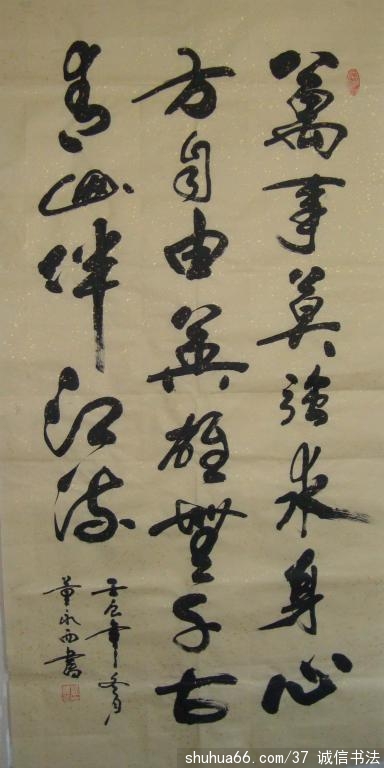 萬事莫強求身心
方自由英雄無千古
青山伴江流
壬辰年冬月
董永西書
shuhua66.com/37 诚信书法